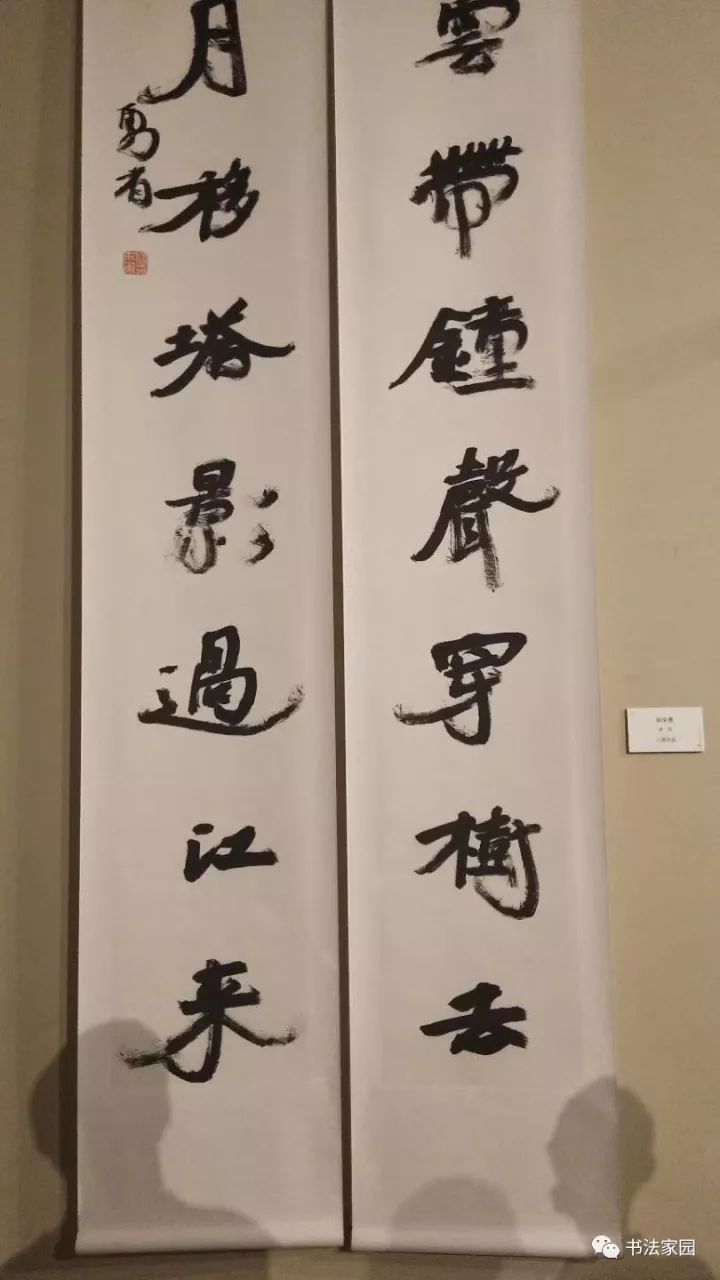 雲帶鐘聲穿樹去
月移塔影過江来
书法家园